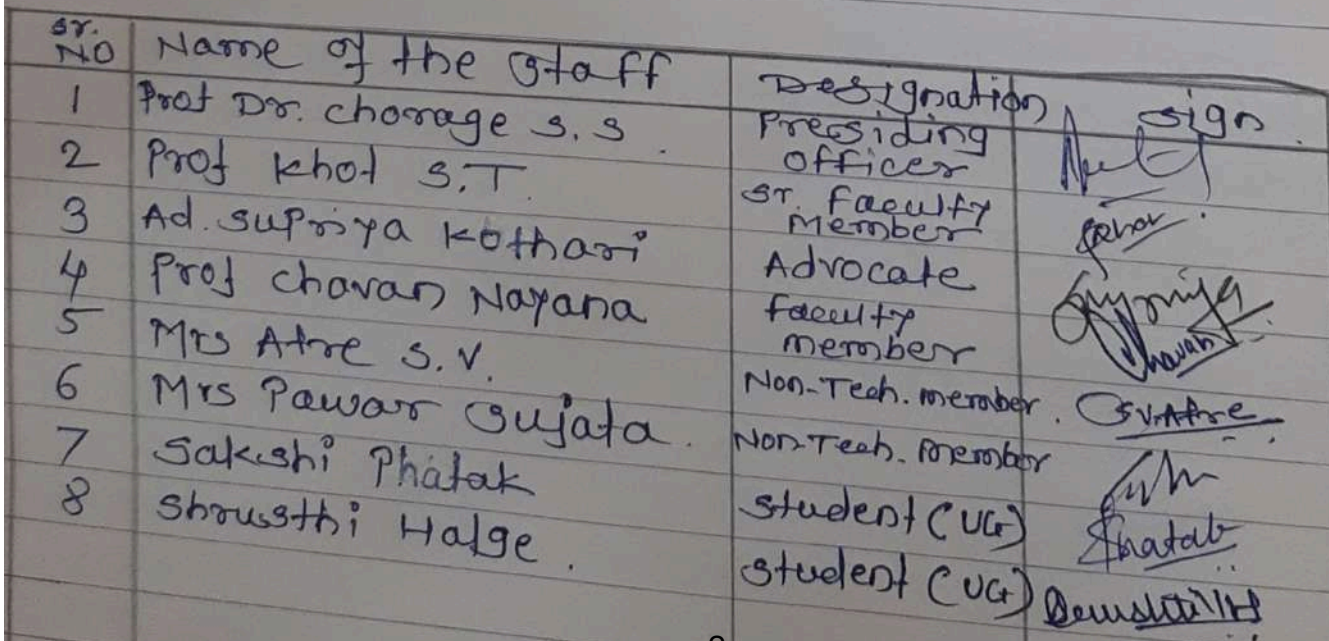 Sr. NO Name of the Staff Designation sign
1 Prof Dr. Chorage S. S. Presiding Officer
2 Prof Khot S.T. Sr. Faculty Member
3 Ad. Supriya Kothari Advocate
4 Prof Chavan Nayana faculty member Chavan
5 Mrs Atre S. V. Non-Tech. member. S.V.Atre
6 Mrs Pawar Sujata. Non-Tech. member
7 Sakshi Phatak Student (UG) Phatak
8 Shrussthi Halge. Student (UG)